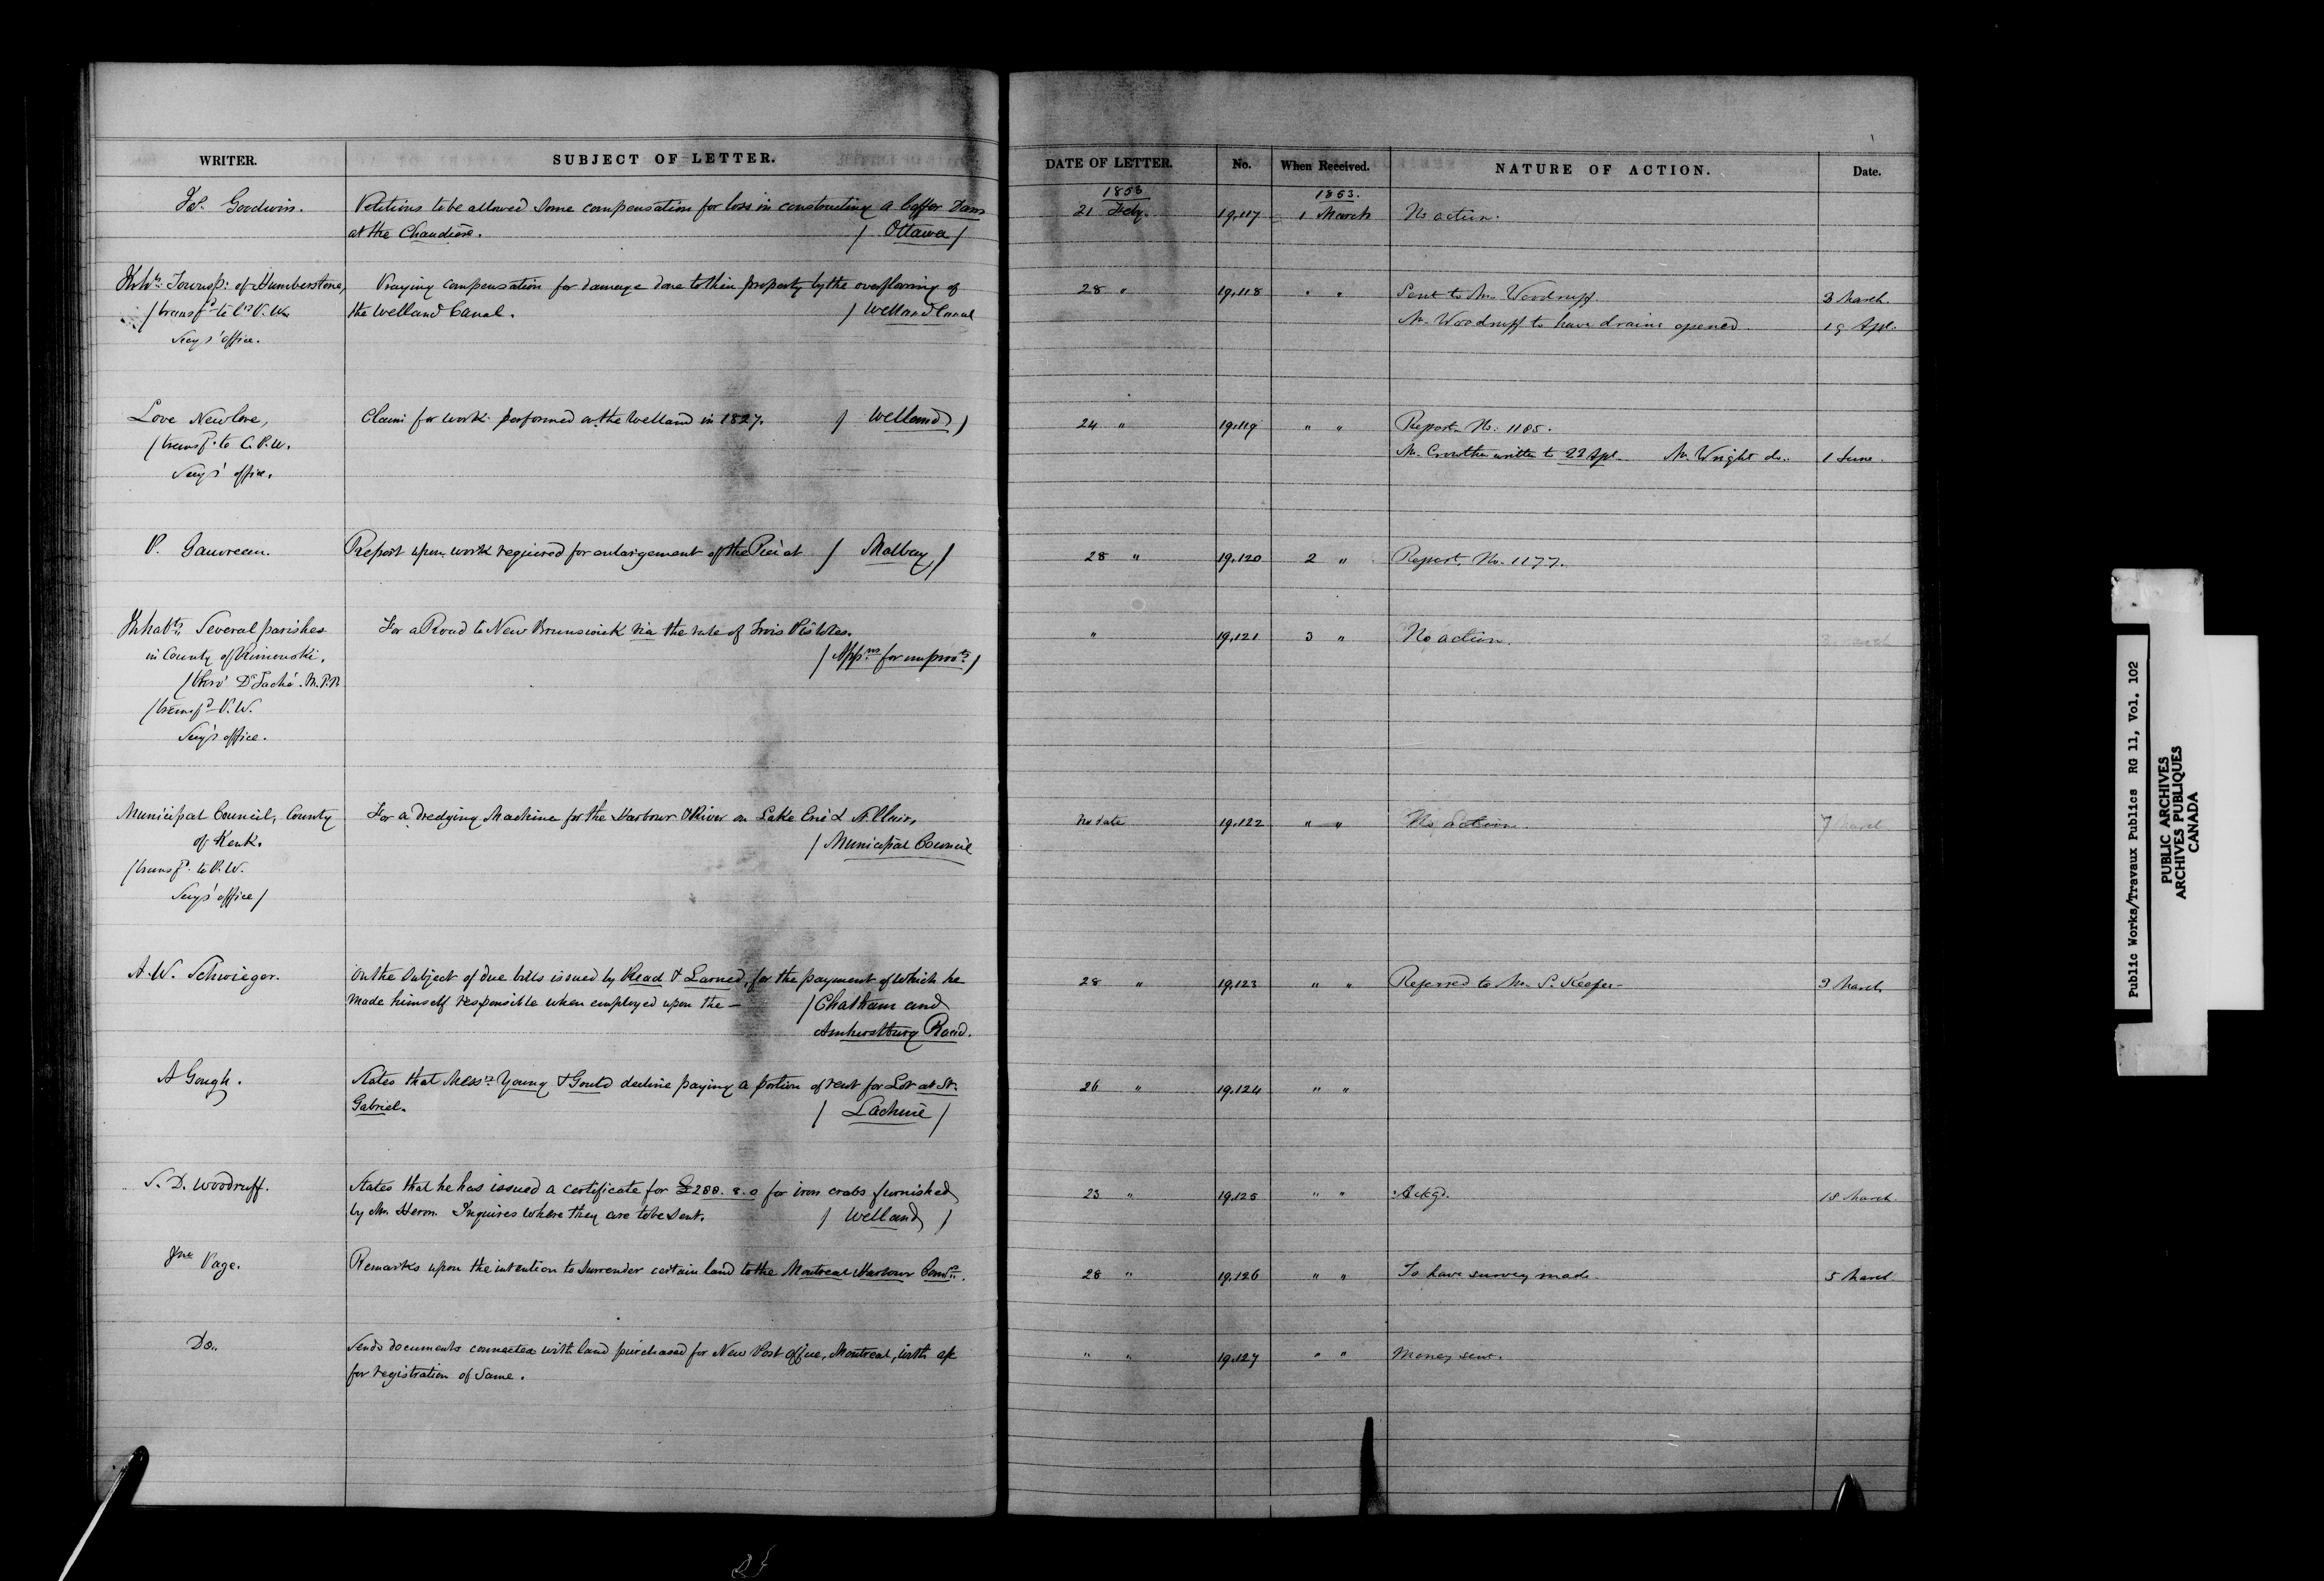 WRITER.
SUBJECT OF LETTER.
Jas. Goodwin.
Petitions to be allowed some compensation for loss in constructing a Coffer Dam
at the Chaudière. / Ottawa /
Inhts. Townsp: of Humberstone,
/ transfd to P. W.
Secy's office.
Praying compensation for damage done to their property by the overflowing of
the Welland Canal. / Welland Canal
Love Newlove,
/ transfd. to C. P. W.
Secy's office.
Claim for work performed on the Welland in 1827. / Welland /
P. Gauvreau.
Report upon work required for enlargement of the Pier at / Malbay /
Inhabts. Several parishes
in County of Rimouski.
/ thro' Dr Taché. M.P.P.
/ transfd P. W.
Secy's office.
For a Road to New Brunswick via the rute of Trois Pistoles.
/ Appns for improvts /
Municipal Council, County
of Kent.
/ transfd. to P. W.
Secy's office /
For a dredging Machine for the Harbour & River on Lake Erie & St. Clair,
/ Municipal Council
A. W. Schwieger.
On the subject of due bills issued by Read & Larned, for the payment of which he
made himself responsible when employed upon the — / Chatham and
Amherstburg Road.
A Gough.
States that Messrs Young & Gould decline paying a portion of rent for Lot at St.
Gabriel. / Lachine /
S. D. Woodruff.
States that he has issued a certificate for £288. 8. 0 for iron crabs furnished
by Mr. Heron. Inquires where they are to be sent. / Welland /
Jno Page.
Remarks upon the intention to surrender certain land to the Montreal Harbour Comrs.
Do.
Sends documents connected with land purchased for New Post Office, Montreal, with a/c
for registration of same.
DATE OF LETTER.
No.
When Received.
NATURE OF ACTION.
Date.
1853
1853.
21 Feby. 19,117 1 March No action.
28 " 19,118 " " Sent to Mr. Woodruff. 3 March.
Mr. Woodruff to have drains opened. 19 Apl.
24 " 19,119 " " Report No. 1185.
Mr. Crowther written to 22 Apl. Mr. Wright do. 1 June.
28 " 19,120 2 " Report, No. 1177.
" 19,121 3 " No action. 3 March
No date 19,122 " " No action. 7 March
28 " 19,123 " " Referred to Mr. S. Keefer 3 March
26 " 19,124 " "
23 " 19,125 " " Ackgd. 18 March
28 " 19,126 " " To have survey made. 5 March
" " 19,127 " " Money sent.
Public Works/Travaux Publics RG 11, Vol. 102
PUBLIC ARCHIVES
ARCHIVES PUBLIQUES
CANADA